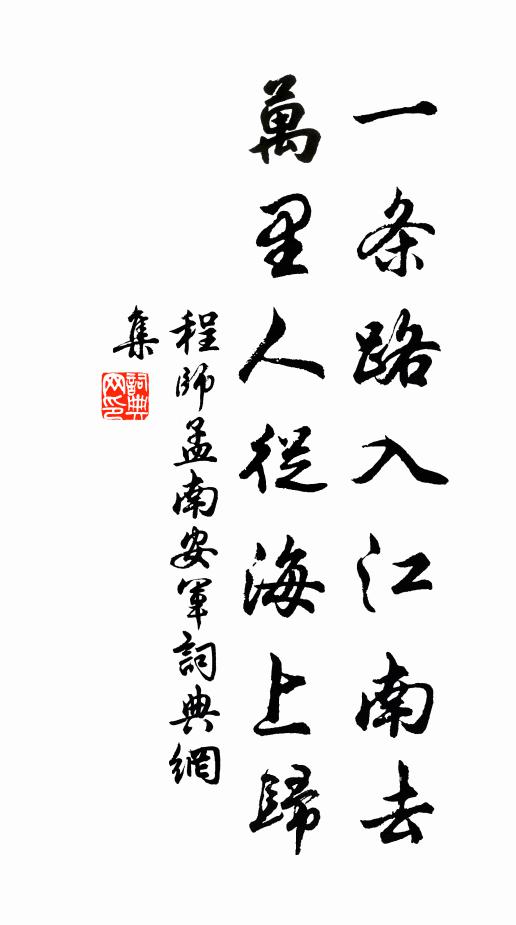 一条路入江南去
萬里人從海上歸
程師孟南安軍詞典網
集
詞典
网印